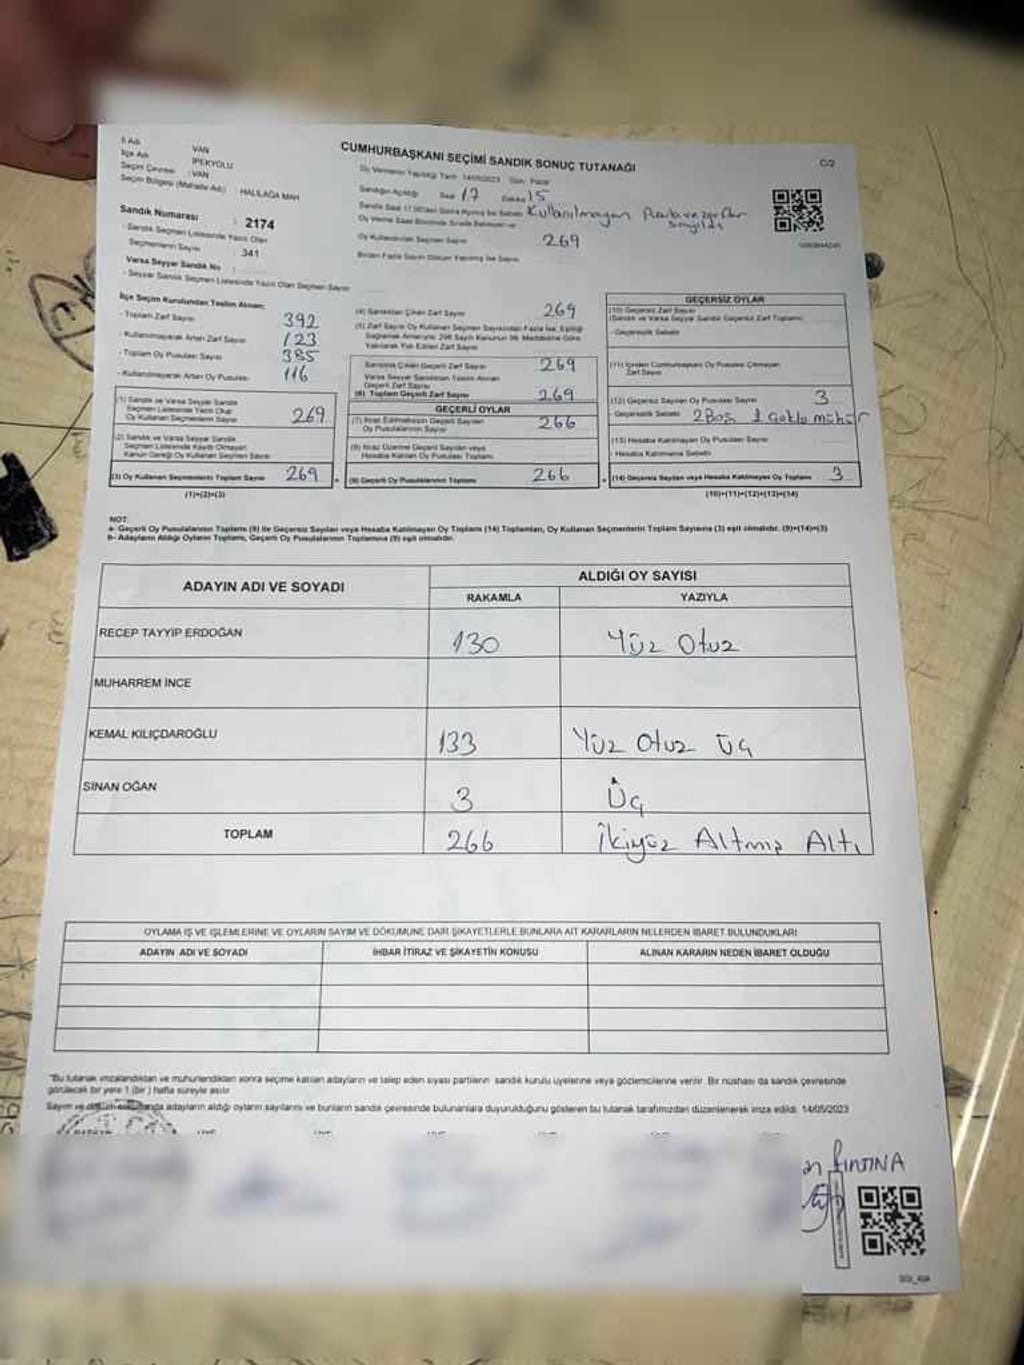 CUMHURBAŞKANI SEÇİMİ SANDIK SONUÇ TUTANAĞI
C/2
İl Adı : VAN
İlçe Adı : İPEKYOLU
Seçim Çevresi : VAN
Seçim Bölgesi (Mahalle Adı) : HALİLAĞA MAH
Sandık Numarası : 2174
Sandık Seçmen Listesinde Yazılı Olan
Seçmenlerin Sayısı : 341
Varsa Seyyar Sandık No :
- Seyyar Sandık Seçmen Listesinde Yazılı Olan Seçmen Sayısı
Oy Vermenin Yapıldığı Tarih 14/05/2023 Gün Pazar
Sandığın Açıldığı Saat 17 Dakika 15
Kullanılmayan
Oy Kullanan Seçmen Sayısı 269
Birden Fazla Sayım Döküm Yapılmış İse Sayısı
İlçe Seçim Kurulundan Teslim Alınan:
- Toplam Zarf Sayısı 392
- Kullanılmayarak Artan Zarf Sayısı 123
- Toplam Oy Pusulası Sayısı 385
- Kullanılmayarak Artan Oy Pusulası 116
(1) Sandık ve Varsa Seyyar Sandık
Seçmen Listesinde Yazılı Olup
Oy Kullanan Seçmenlerin Sayısı 269
(2) Sandık ve Varsa Seyyar Sandık
Seçmen Listesinde Kayıtlı Olmayan
Kanun Gereği Oy Kullanan Seçmen Sayısı
(3) Oy Kullanan Seçmenlerin Toplam Sayısı 269
(1)+(2)=(3)
(4) Sandıktan Çıkan Zarf Sayısı 269
(5) Zarf Sayısı Oy Kullanan Seçmen Sayısından Fazla İse, Eşitliği
Sağlamak Amacıyla; 298 Sayılı Kanunun 98. Maddesine Göre
Yakılarak Yok Edilen Zarf Sayısı
Sandıktan Çıkan Geçerli Zarf Sayısı 269
Varsa Seyyar Sandıktan Teslim Alınan
Geçerli Zarf Sayısı
(6) Toplam Geçerli Zarf Sayısı 269
GEÇERLİ OYLAR
(7) İtiraz Edilmeksizin Geçerli Sayılan
Oy Pusulalarının Sayısı 266
(8) İtiraz Üzerine Geçerli Sayılan veya
Hesaba Katılan Oy Pusulası Toplamı
(9) Geçerli Oy Pusulalarının Toplamı 266
GEÇERSİZ OYLAR
(10) Geçersiz Zarf Sayısı
(Sandık ve Varsa Seyyar Sandık Geçersiz Zarf Toplamı)
- Geçersizlik Sebebi
(11) İçinden Cumhurbaşkanı Oy Pusulası Çıkmayan
Zarf Sayısı
(12) Geçersiz Sayılan Oy Pusulası Sayısı 3
Geçersizlik Sebebi 2 Boş 1 Çoklu mühür
(13) Hesaba Katılmayan Oy Pusulası Sayısı
- Hesaba Katılmama Sebebi
(14) Geçersiz Sayılan veya Hesaba Katılmayan Oy Toplamı 3
(10)+(11)+(12)+(13)=(14)
NOT:
a- Geçerli Oy Pusulalarının Toplamı (9) ile Geçersiz Sayılan veya Hesaba Katılmayan Oy Toplamı (14) Toplamları, Oy Kullanan Seçmenlerin Toplam Sayısına (3) eşit olmalıdır. (9)+(14)=(3)
b- Adayların Aldığı Oyların Toplamı, Geçerli Oy Pusulalarının Toplamına (9) eşit olmalıdır.
ADAYIN ADI VE SOYADI
ALDIĞI OY SAYISI
RAKAMLA YAZIYLA
RECEP TAYYİP ERDOĞAN 130 Yüz Otuz
MUHARREM İNCE
KEMAL KILIÇDAROĞLU 133 Yüz Otuz üç
SİNAN OĞAN 3 Üç
TOPLAM 266 İkiyüz Altmış Altı
OYLAMA İŞ VE İŞLEMLERİNE VE OYLARIN SAYIM VE DÖKÜMÜNE DAİR ŞİKAYETLERLE BUNLARA AİT KARARLARIN NELERDEN İBARET BULUNDUKLARI
ADAYIN ADI VE SOYADI İHBAR İTİRAZ VE ŞİKAYETİN KONUSU ALINAN KARARIN NEDEN İBARET OLDUĞU
"Bu tutanak imzalandıktan ve mühürlendikten sonra seçime katılan adayların ve talep eden siyasi partilerin sandık kurulu üyelerine veya gözlemcilerine verilir. Bir nüshası da sandık çevresinde
görülecek bir yere 1 (bir) hafta süreyle asılır.
Sayım ve döküm sonucunda adayların aldığı oyların sayılarını ve bunların sandık çevresinde bulunanlara duyurulduğunu gösteren bu tutanak tarafımızdan düzenlenerek imza edildi. 14/05/2023